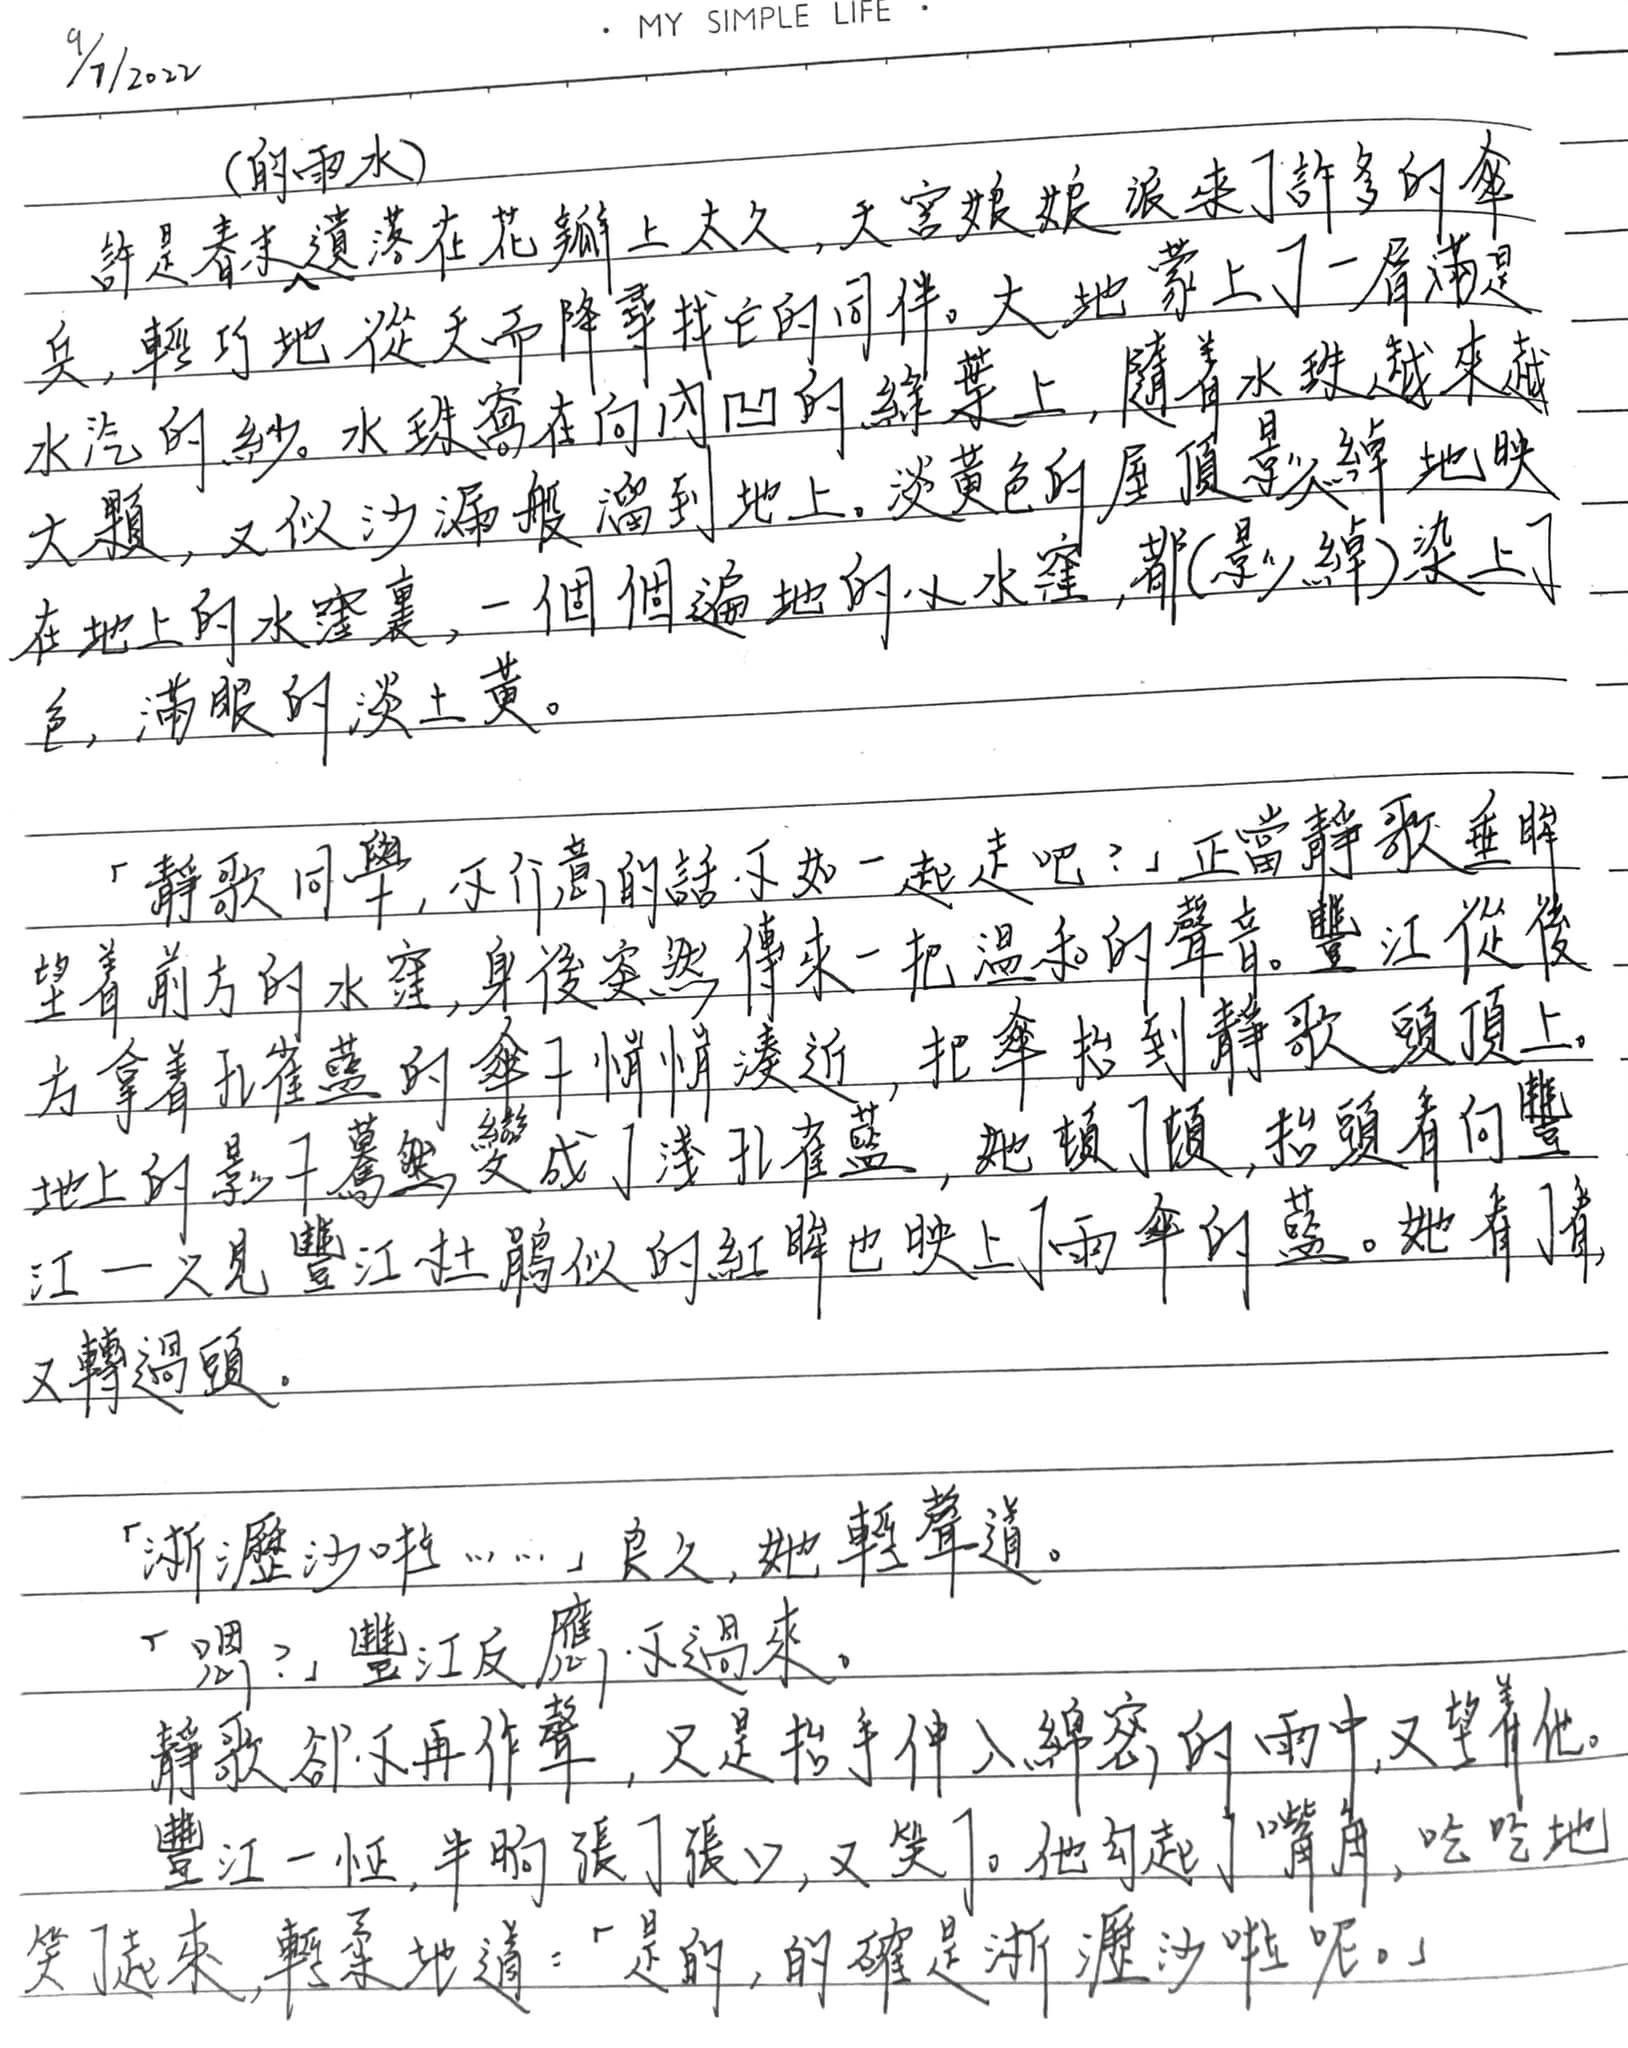 · MY SIMPLE LIFE ·
9/7/2022
(的雨水)
許是春末遺落在花瓣上太久,天宮娘娘派來了許多的傘
兵,輕巧地從天而降尋找它的同伴。大地蒙上了一層滿是
水汽的紗。水珠窩在向內凹的綠葉上,隨着水珠越來越
大顆,又似沙漏般溜到地上。淡黃色的屋頂影影綽綽地映
在地上的水窪裏,一個個遍地的小水窪,都(影影綽綽)染上了
色,滿眼的淡土黃。
「靜歌同學,不介意的話不如一起走吧?」正當靜歌垂眸
望着前方的水窪,身後突然傳來一把溫和的聲音。豐江從後
方拿着孔雀藍的傘子悄悄湊近,把傘抬到靜歌頭頂上。
地上的影子驀然變成了淺孔雀藍,她頓了頓,抬頭看向豐
江一只見豐江杜鵑似的紅眸也映上了雨傘的藍。她看了看,
又轉過頭。
「淅瀝沙啦……」良久,她輕聲道。
「嗯?」豐江反應不過來。
靜歌卻不再作聲,只是抬手伸入綿密的雨中,又望着他。
豐江一怔,半晌張了張口,又笑了。他勾起了嘴角,吃吃地
笑了起來,輕柔地道:「是的,的確是淅瀝沙啦呢。」